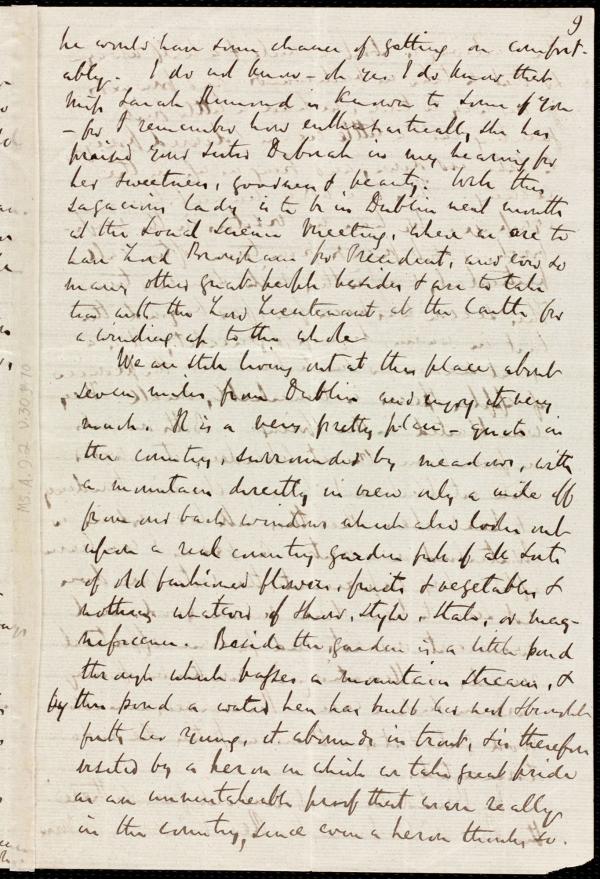 9
he would have some chance of getting on comfort-
ably. I do not know - oh yes I do know that
Miss Sarah Remond is known to some of you
- for I remember how enthusiastically she has
praised your sister Deborah in my hearing for
her sweetness, goodness & beauty. Well this
sagacious lady is to be in Dublin next month
at the Social Science Meeting, where we are to
have Lord Brougham for President, and ever so
many other great people besides & are to take
tea with the Lord Lieutenant at the Castle for
a winding up to the whole
We are still living out at this place about
seven miles from Dublin and enjoy it very
much. It is a very pretty place - quite in
the country, surrounded by meadows, with
a mountain directly in view only a mile off
from our back windows which also looks out
upon a real country garden full of all sorts
of old fashioned flowers, fruits & vegetables &
nothing whatever of show, style, state, or mag-
nificence. Beside the garden is a little pond
through which passes a mountain stream, &
by this pond a water hen has built her nest & brought
forth her young, it abounds in trout, & is therefore
visited by a heron in which we take great pride
as an unmistakeable proof that we are really
in the country, since even a heron thinks so.
Ms. A. 9.2 v. 30 p 90